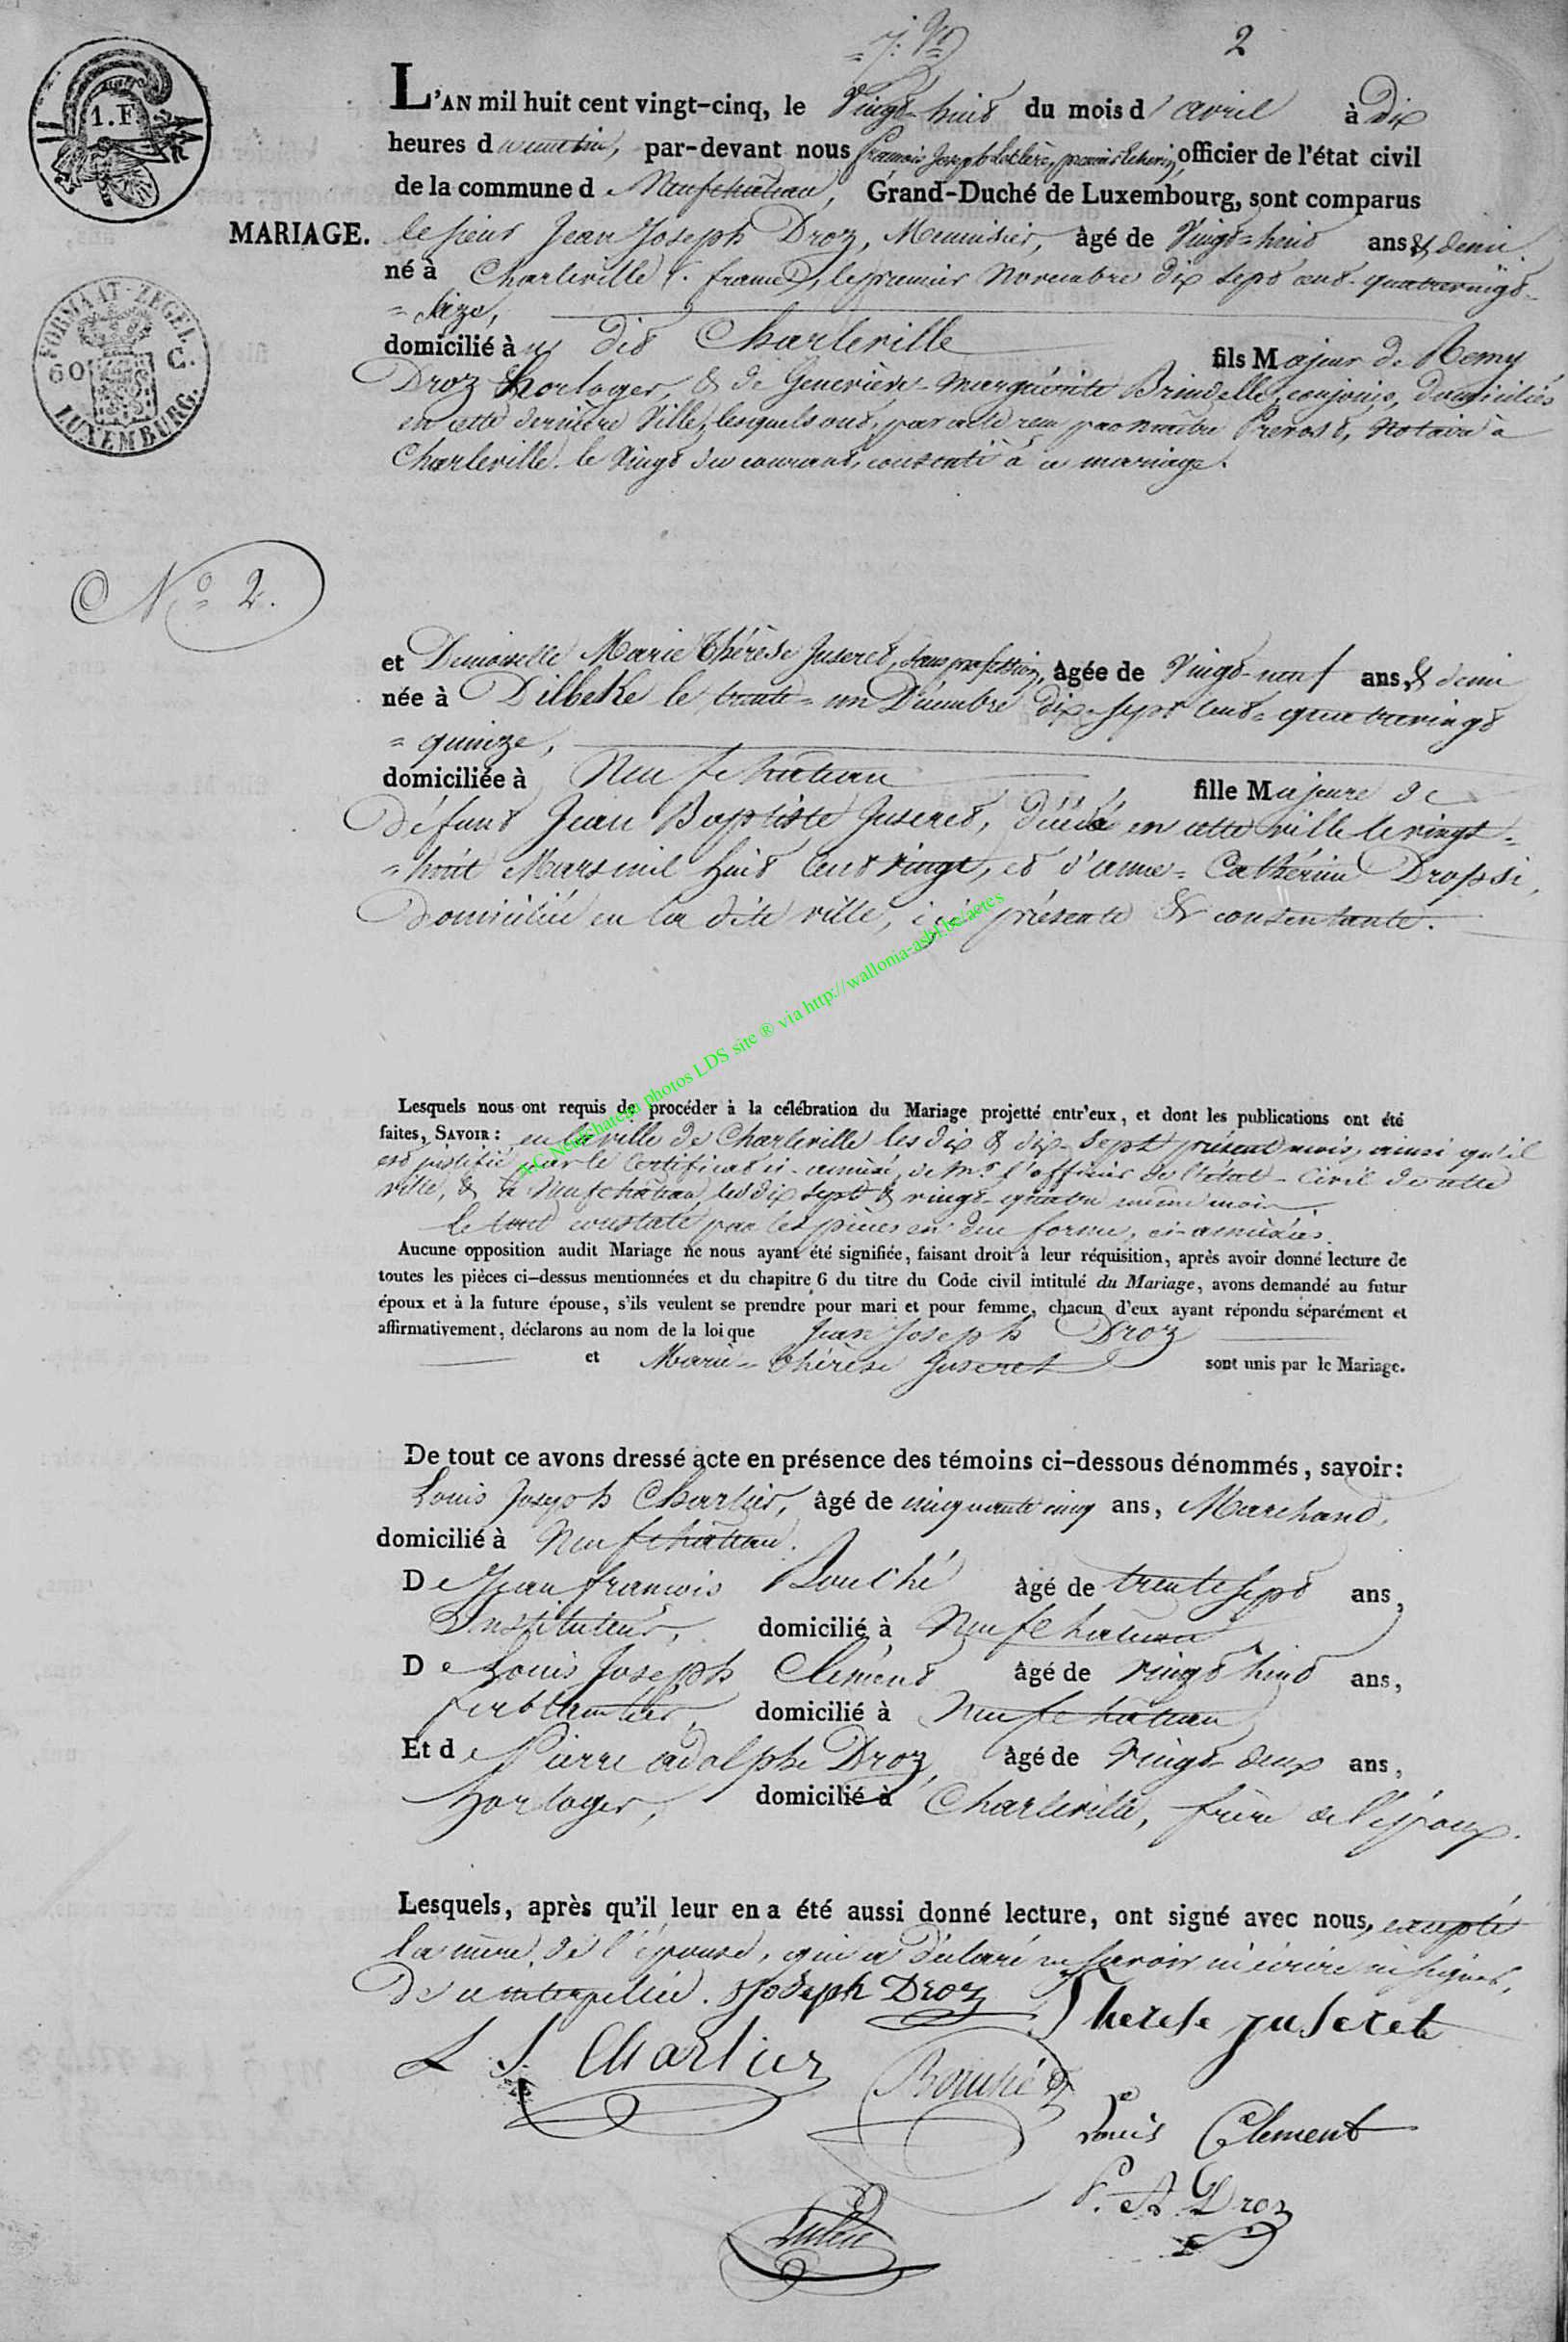 2
L'AN mil huit cent vingt-cinq, le Vingt-huit du mois d'avril à Dix
1. F.
heures du matin, par-devant nous françois Joseph Leclère, premier Echevin, officier de l'état civil
de la commune de Neufchâteau, Grand-Duché de Luxembourg, sont comparus
MARIAGE.
le sieur Jean Joseph Droz, Menuisier, âgé de Vingt-huit ans & demi
né à Charleville (france), le premier Novembre dix sept cent-quatrevingt-
=seize,
FORMAAT-ZEGEL
60 C.
LUXEMBURG.
domicilié au dit Charleville fils Majeur de Remy
Droz horloger, & de Geneviève-Marguérite Brindelle, conjoins, domiciliés
en cette dernière Ville, lesquels ont, par acte reçu par maître Prevost, Notaire à
Charleville le Vingt du courant, consenti à ce mariage.
N° 2.
et Demoiselle Marie Thérèse Juseret, sans profession, âgée de Vingt-neuf ans, & demi
née à Dilbeke le trente-un Décembre dix-sept cent-quatrevingt
=quinze,
domiciliée à Neufchâteau fille Majeure de
défunt Jean Baptiste Juseret, décédé en cette ville le vingt-
=huit Mars mil huit cent vingt, et d'anne=Cathérine Dropsi,
Domiciliée en la dite ville, ici présente & consentante.
A.C.Neufchateau photos LDS site ® via http://wallonia-asbl.be/actes
Lesquels nous ont requis de procéder à la célébration du Mariage projetté entr'eux, et dont les publications ont été
faites, SAVOIR : en la ville de Charleville les dix & dix-sept présent mois, ainsi qu'il
est justifié par le Certificat ci-annexé, de Mr l'officier de l'état-Civil de cette
ville, & à Neufchâteau, les dix sept & vingt-quatre même mois.
Le tout constaté par les pièces en due forme, ci-annéxées.
Aucune opposition audit Mariage ne nous ayant été signifiée, faisant droit à leur réquisition, après avoir donné lecture de
toutes les pièces ci-dessus mentionnées et du chapitre 6 du titre du Code civil intitulé du Mariage, avons demandé au futur
époux et à la future épouse, s'ils veulent se prendre pour mari et pour femme, chacun d'eux ayant répondu séparément et
affirmativement, déclarons au nom de la loi que Jean Joseph Droz
et Marie-Thérèse Juseret sont unis par le Mariage.
De tout ce avons dressé acte en présence des témoins ci-dessous dénommés, savoir:
Louis Joseph Charlier, âgé de cinquante cinq ans, Marchand,
domicilié à Neufchâteau.
De Jean françois Bouché âgé de trente sept ans,
Instituteur, domicilié à Neufchâteau
De Louis Joseph Clément âgé de vingt huit ans,
ferblantier, domicilié à Neufchâteau
Et de Pierre adolphe Droz, âgé de vingt-deux ans,
Horloger, domicilié à Charleville, frère de l'époux.
Lesquels, après qu'il leur en a été aussi donné lecture, ont signé avec nous, excepté
la mère de l'épouse, qui a déclaré ne savoir ni écrire ni signer,
De ce interpellée. J Joseph Droz Therese juseret
L J. Charlier Bouché
Louis Clement
P. A Droz